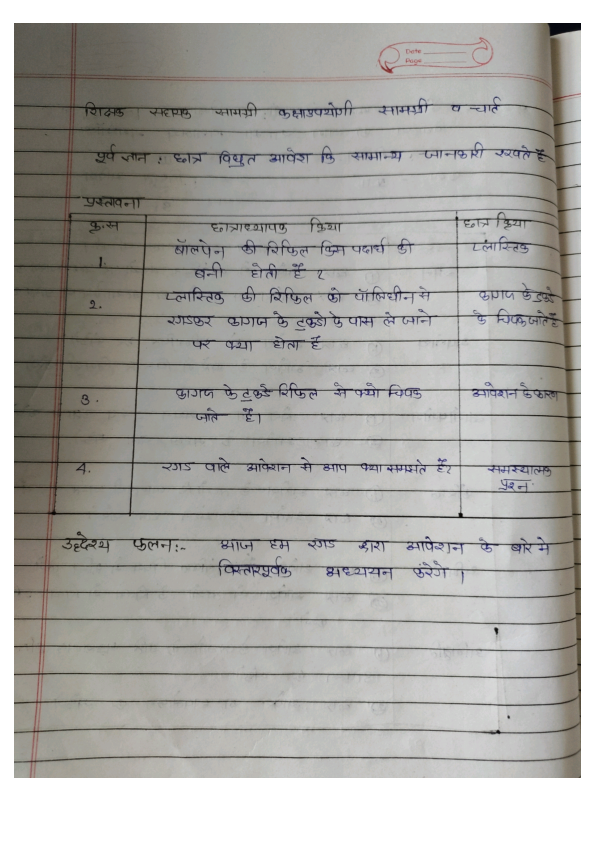 Date
Page
शिक्षक सहायक सामग्री : कक्षाउपयोगी सामग्री व चार्ट
पूर्व ज्ञान : छात्र विधुत आवेश कि सामान्य जानकारी रखते हैं
प्रस्तावना
क्र.स छात्राध्यापक क्रिया छात्र क्रिया
1. बॉलपेन की रिफिल किस पदार्थ की प्लास्तिक
बनी होती हैं ?
2. प्लास्तिक की रिफिल को पॉलिथीन से कागज के टुकडे
रगडकर कागज के टुकडो के पास ले जाने के चिपक जाते है
पर क्या होता हैं
3. कागज के टुकडे रिफिल से क्यो चिपक आवेशन के कारण
जाते हैं।
4. रगड वाले आवेशन से आप क्या समझते हैं? समस्यात्मक
प्रश्न.
उद्देश्य कलन:- आज हम रगड द्वारा आवेशन के बारे मे
विस्तारपूर्वक अध्ययन करेगे ।